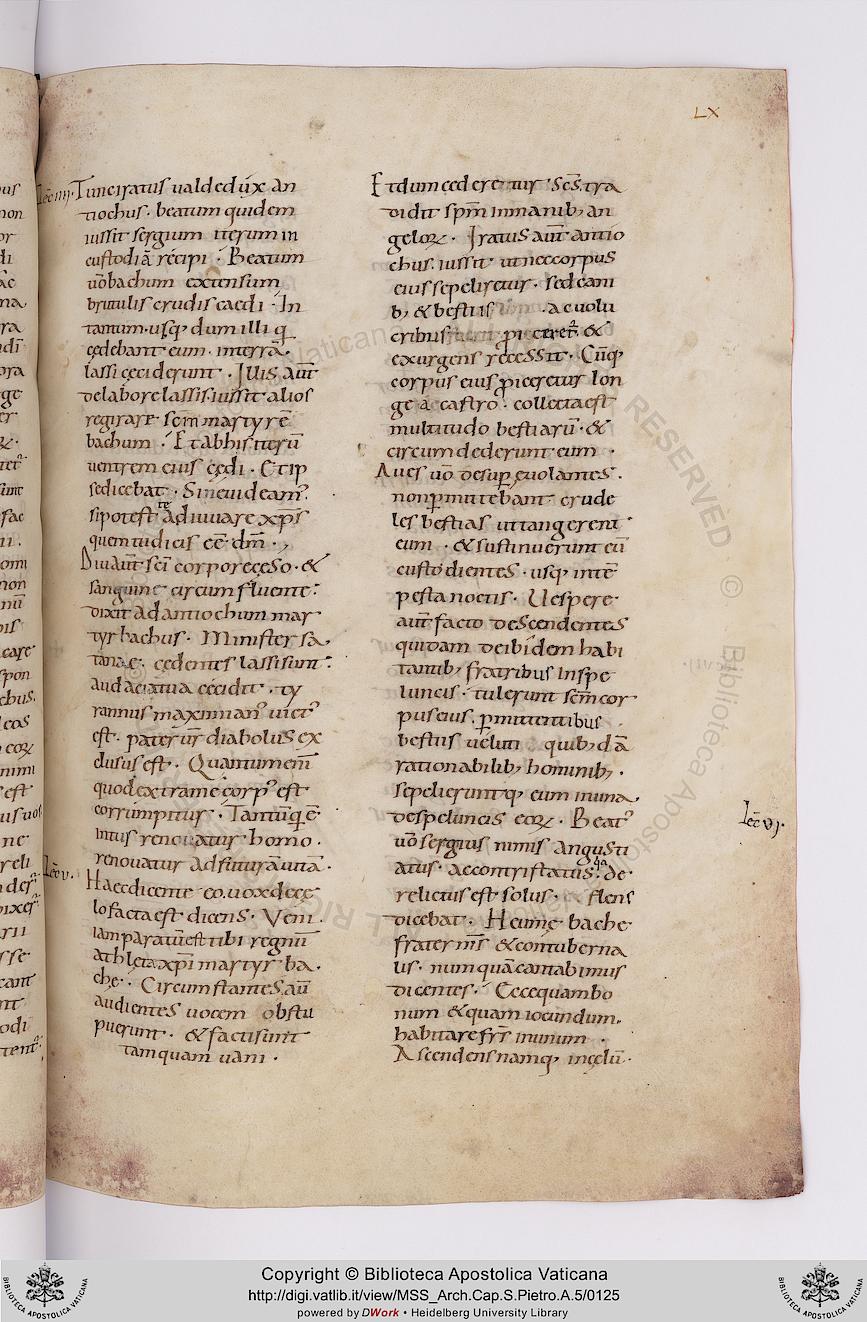 LX
Lec̄ iiij. Tunc iratus ualde dux an
tiochus · beatum quidem
iussit sergium iterum in
custodiā recipi · Beatum
uōbachum extensum
crudis caedi · In
tantum · usq; dum illi q̄
cędebant eum · in terrā ·
lassi ceciderunt · Illis aūt
de labore lassis · iussit alios
regirare sc̄m martyrē
bachum · Et ab his iterū
uentrem eius cędi · Et ip
se dicebat · Si
si potest te adiuuare xp̄s
quem tu dicis eē dm̄ ·,
aūt sc̄i corpore cęso · &
sanguine circumfluente ·
dixit ad antiochum mar
tyr bachus · Minister sa
tanae · cędentes lassi sunt ·
audacia tua cecidit · ty
rannus maximian' uict'
est · pater ur̄ diabolus ex
clusus est · Quantum enī
quod extra me corp' est
corrumpitur · Tantū
intus renouatur homo ·
renouatur ad futurā uitā ·
Lec̄ v. Haec dicente eo · uox de cę
lo facta est dicens · Veni ·
iam paratū est tibi regnū
athleta xp̄i martyr ba
che · Circumstantes aū
audientes uocem obstu
puerunt · & facti sunt
tamquam uani ·
Et dum cederetur · sc̄s tra
didit sp̄m in manib; an
gelorꝝ · Iratus aūt antio
chus · iussit ut nec corpus
eius sepeliretur · sed cani
b; & bestiis · ac uolu
cribus &
exurgens recessit · Cūq;
corpus eius ꝓiceretur lon
ge a castro · collecta est
multitudo bestiarū · &
circumdederunt eum ·
Aues uō desuꝑ euolantes ·
non ꝑmittebant crude
les bestias ut tangerent
eum · & sustinuerunt eū
custodientes · usq; inte
pesta noctis · Uespere
aūt facto descendentes
quidam de ibidem habi
tantib; fratribus in spe
luncis · tulerunt sc̄m cor
pus eius · ꝑmittentibus
bestiis uelut quib; dā
rationabilib; hominib; ·
sepelieruntq; eum in una
de speluncis eorꝝ · Beat'
Lec̄ vj.
uō sergius nimis angusti
atus · accontristatus · qa de
relictus est solus · flens
dicebat · Heu me bache
frater m̄s & contuberna
lis · numquā cantabimus
dicentes · Ecce quam bo
num & quam iocundum
habitare fr̄s in unum ·
Ascendens namq; in cęlū ·
Copyright © Biblioteca Apostolica Vaticana
http://digi.vatlib.it/view/MSS_Arch.Cap.S.Pietro.A.5/0125
powered by DWork • Heidelberg University Library
BIBLIOTECA APOSTOLICA VATICANA
BIBLIOTECA APOSTOLICA VATICANA